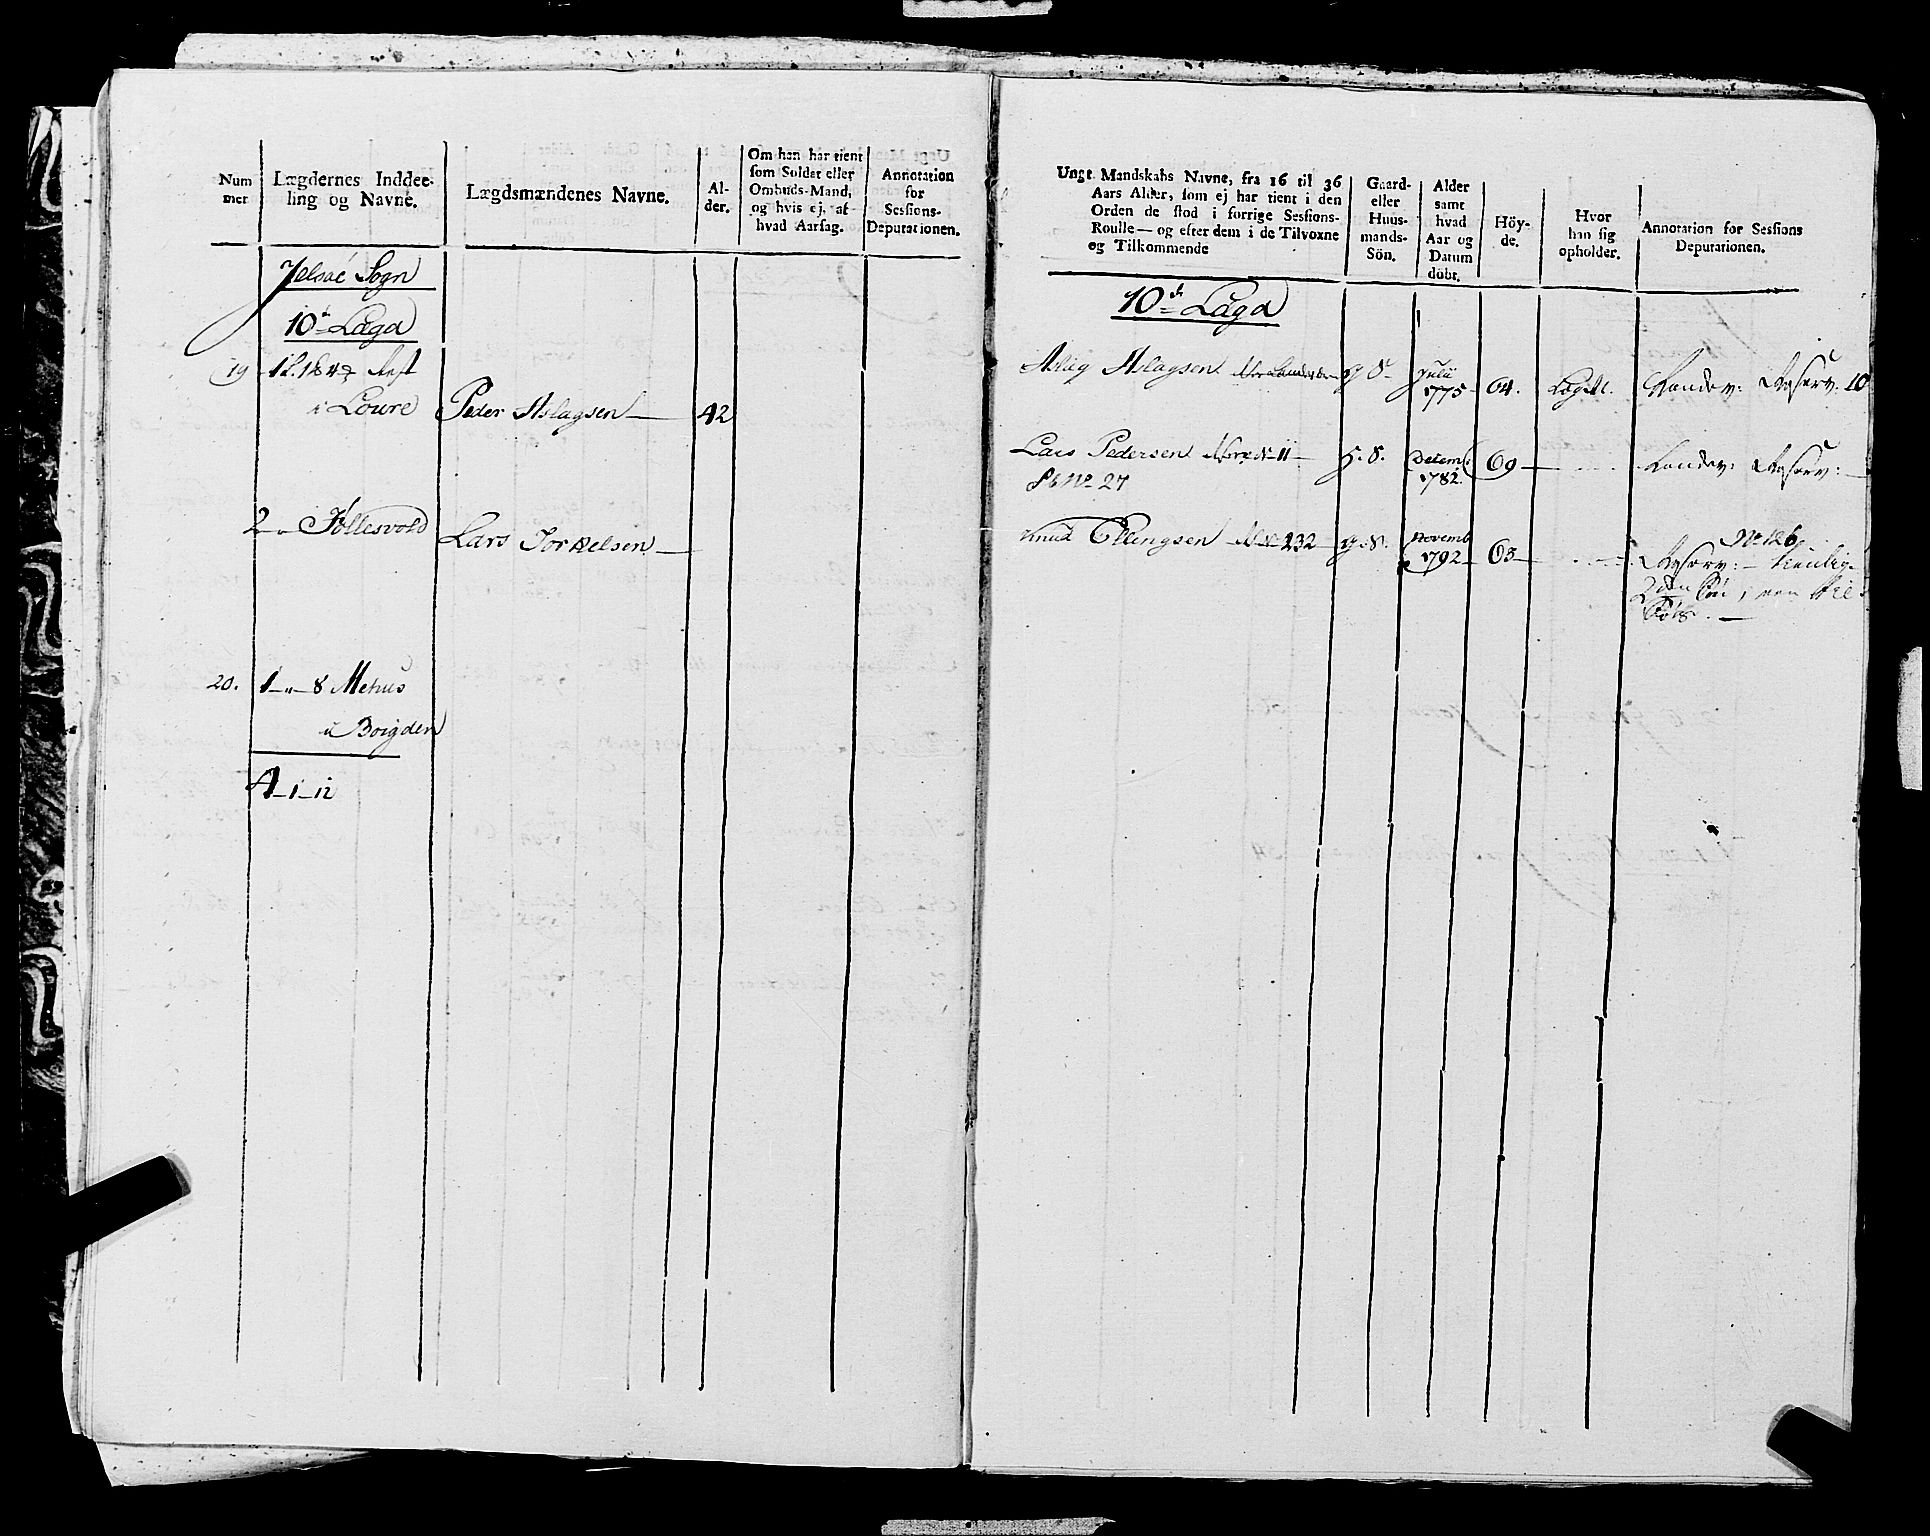 Num
mer
Lægdernes Inddee-
ling og Navne.
Lægdsmændenes Navne.
Al-
der.
Om han har tient
som Soldat eller
Ombuds-Mand,
og hvis ej, af
hvad Aarsag.
Annotation
for
Sessions-
Deputationen.
Jelsöe Sogn
10de Lægd
19
i Loure
Peder Aslagsen
42
2 Föllesvold
Lars Torkelsen
20. 1 - " - 8 Mehus
i Boigden
A - 1 - 12
Ungt Mandskabs Navne, fra 16 til 36
Aars Alder, som ej har tient i den
Orden de stod i forrige Sessions-
Roulle — og efter dem i de Tilvoxne
og Tilkommende
Gaard-
eller
Huus-
mands-
Sön.
Alder
samt
hvad
Aar og
Datum
döbt.
Höy-
de.
Hvor
han sig
opholder.
Annotation for Sessions
Deputationen.
10de Lægd
Aslag Aslagsen g S. Julii 1775 64. Lægdet. Landev: Reserv: 10
Lars Pedersen No 11 g. S. Decemb: 1782. 69 Landev: Reserv:
No 27
Knud Ellingsen No 232 g. S. Novemb 1792 63 No 126
Reserv: